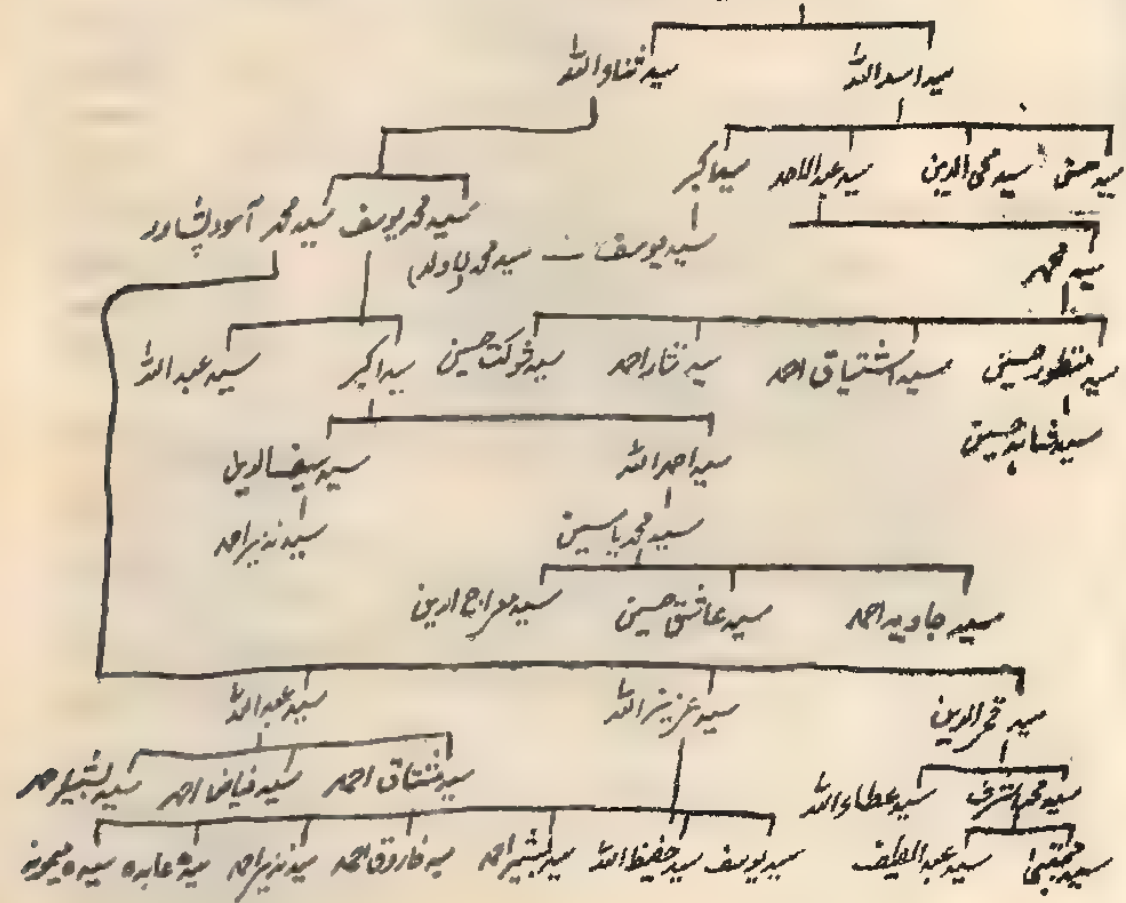 سید اسد اللہ سید ثناء اللہ
سید حسن سید محی الدین سید عبدالاحد سید اکبر
سید محمد یوسف سید محمد آسود پشاور
سید یوسف سید محمد (لاولد)
سید محمد
سید منظور حسین سید اشتیاق احمد سید نثار احمد سید شوکت حسین سید اکبر سید عبد اللہ
سید شاہد حسین
سید احمد اللہ سید سیف الدین
سید محمد یاسین سید نذیر احمد
سید جاوید احمد سید عاشق حسین سید معراج الدین
سید قمر الدین سید عزیز اللہ سید عبد اللہ
سید محمد اشرف سید عطاء اللہ سید مشتاق احمد سید فیاض احمد سید بشیر احمد
سید مجتبیٰ سید عبد اللطیف سید یوسف سید حفیظ اللہ سید بشیر احمد سید فاروق احمد سید نذیر احمد سیدہ عابدہ سیدہ میمونہ